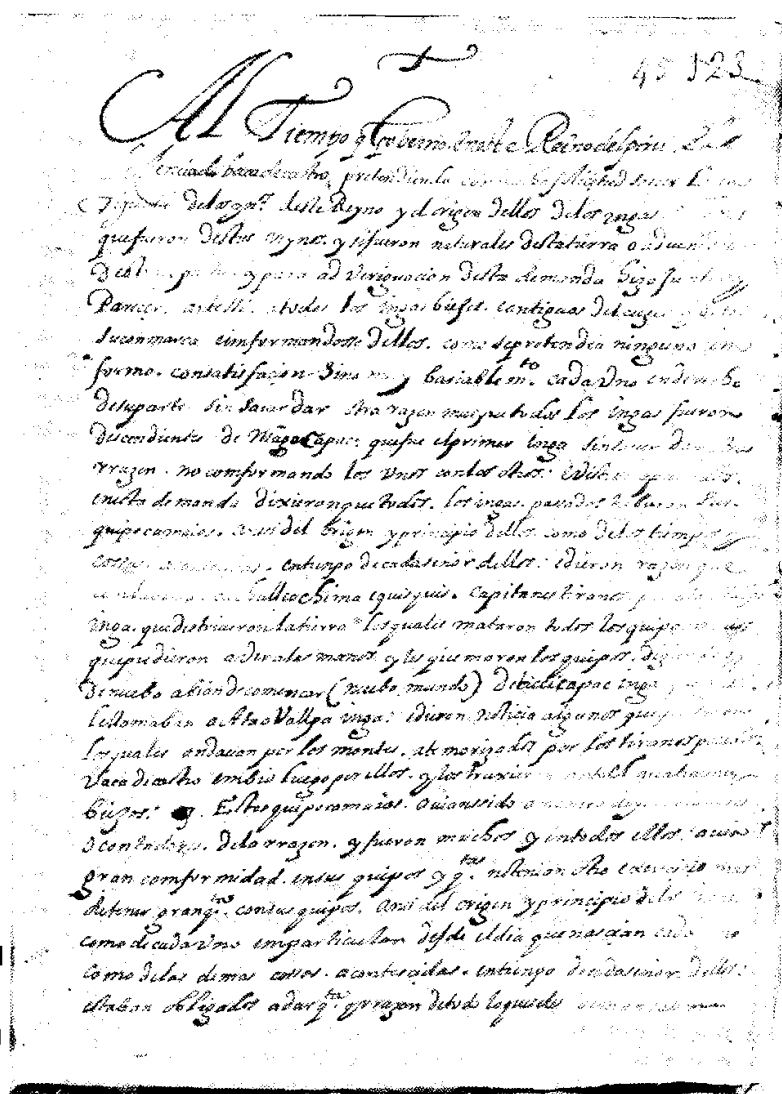 45 123
Al Tiempo q Governo en este Reino del piru
licenciado baca de castro, pretendiendo con mucha solicitud saver
de los yn.os deste Reyno y el origen dellos de los ingas
que fueron destos rynos, y si fueron naturales desta tierra o advene
de otras partes y para adveriguacion desta demanda hizo juntar y
Parecer ante si a todos los ingas biejos e antiguos del cuzco y de to
su comarca e imformandosse dellos, como se pretendia ninguno im
formo, con satisfacion Sino muy bariablem.te cada uno en derecho
de su parte Sin saver dar otra razon mas que todos los ingas fueron
descendientes de Mango Capac que fue el primer inga Sin saver dar otra
rrazon, no comformando los unos con los otros. Vistos
en esta demanda dixieron que todos los ingas pasados tubieron sus
quipocamaios, ansi del origen y principio dellos, como de los tiempos y
cosas acontecidas, en tienpo de cada señor dellos: e dieron razon que
challcochima e quisquis, capitanes tiranos por
inga que destruieron la tierra los quales mataron todos los quipocamaios
que pudieron aver a las manos y les quemaron los quipos, diziendo que
de nuebo abian de comencar (nuebo mundo) de ticcicapac inga
le llamaban a Atao Vallpa inga: e dieron noticia algunos que
los quales andavan por los montes atemorizados por los tiranos pasados
Vaca de castro embio luego por ellos, y los truxieron antel quatro muy
biejos: Estos quipocamaios avian sido a manera de
o contadores, de la rrazon, y fueron muchos y en todos ellos avia
gran comformidad en sus quipos y q.tas no tenian otro exercicio mas
de tener gran q.ta con sus quipos ansi del origen y principio de los
como de cada uno em particular desde el dia que nascian cada uno
como de las demas cosas acontecidas en tienpo de cada señor dellos:
estaban obligados a dar q.ta y razon de todo lo que les